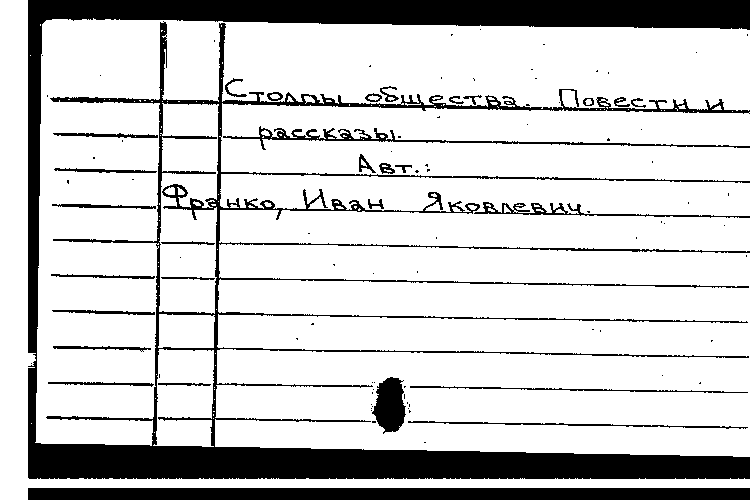 Столпы общества. Повести и
рассказы.
Авт.:
Франко, Иван Яковлевич.